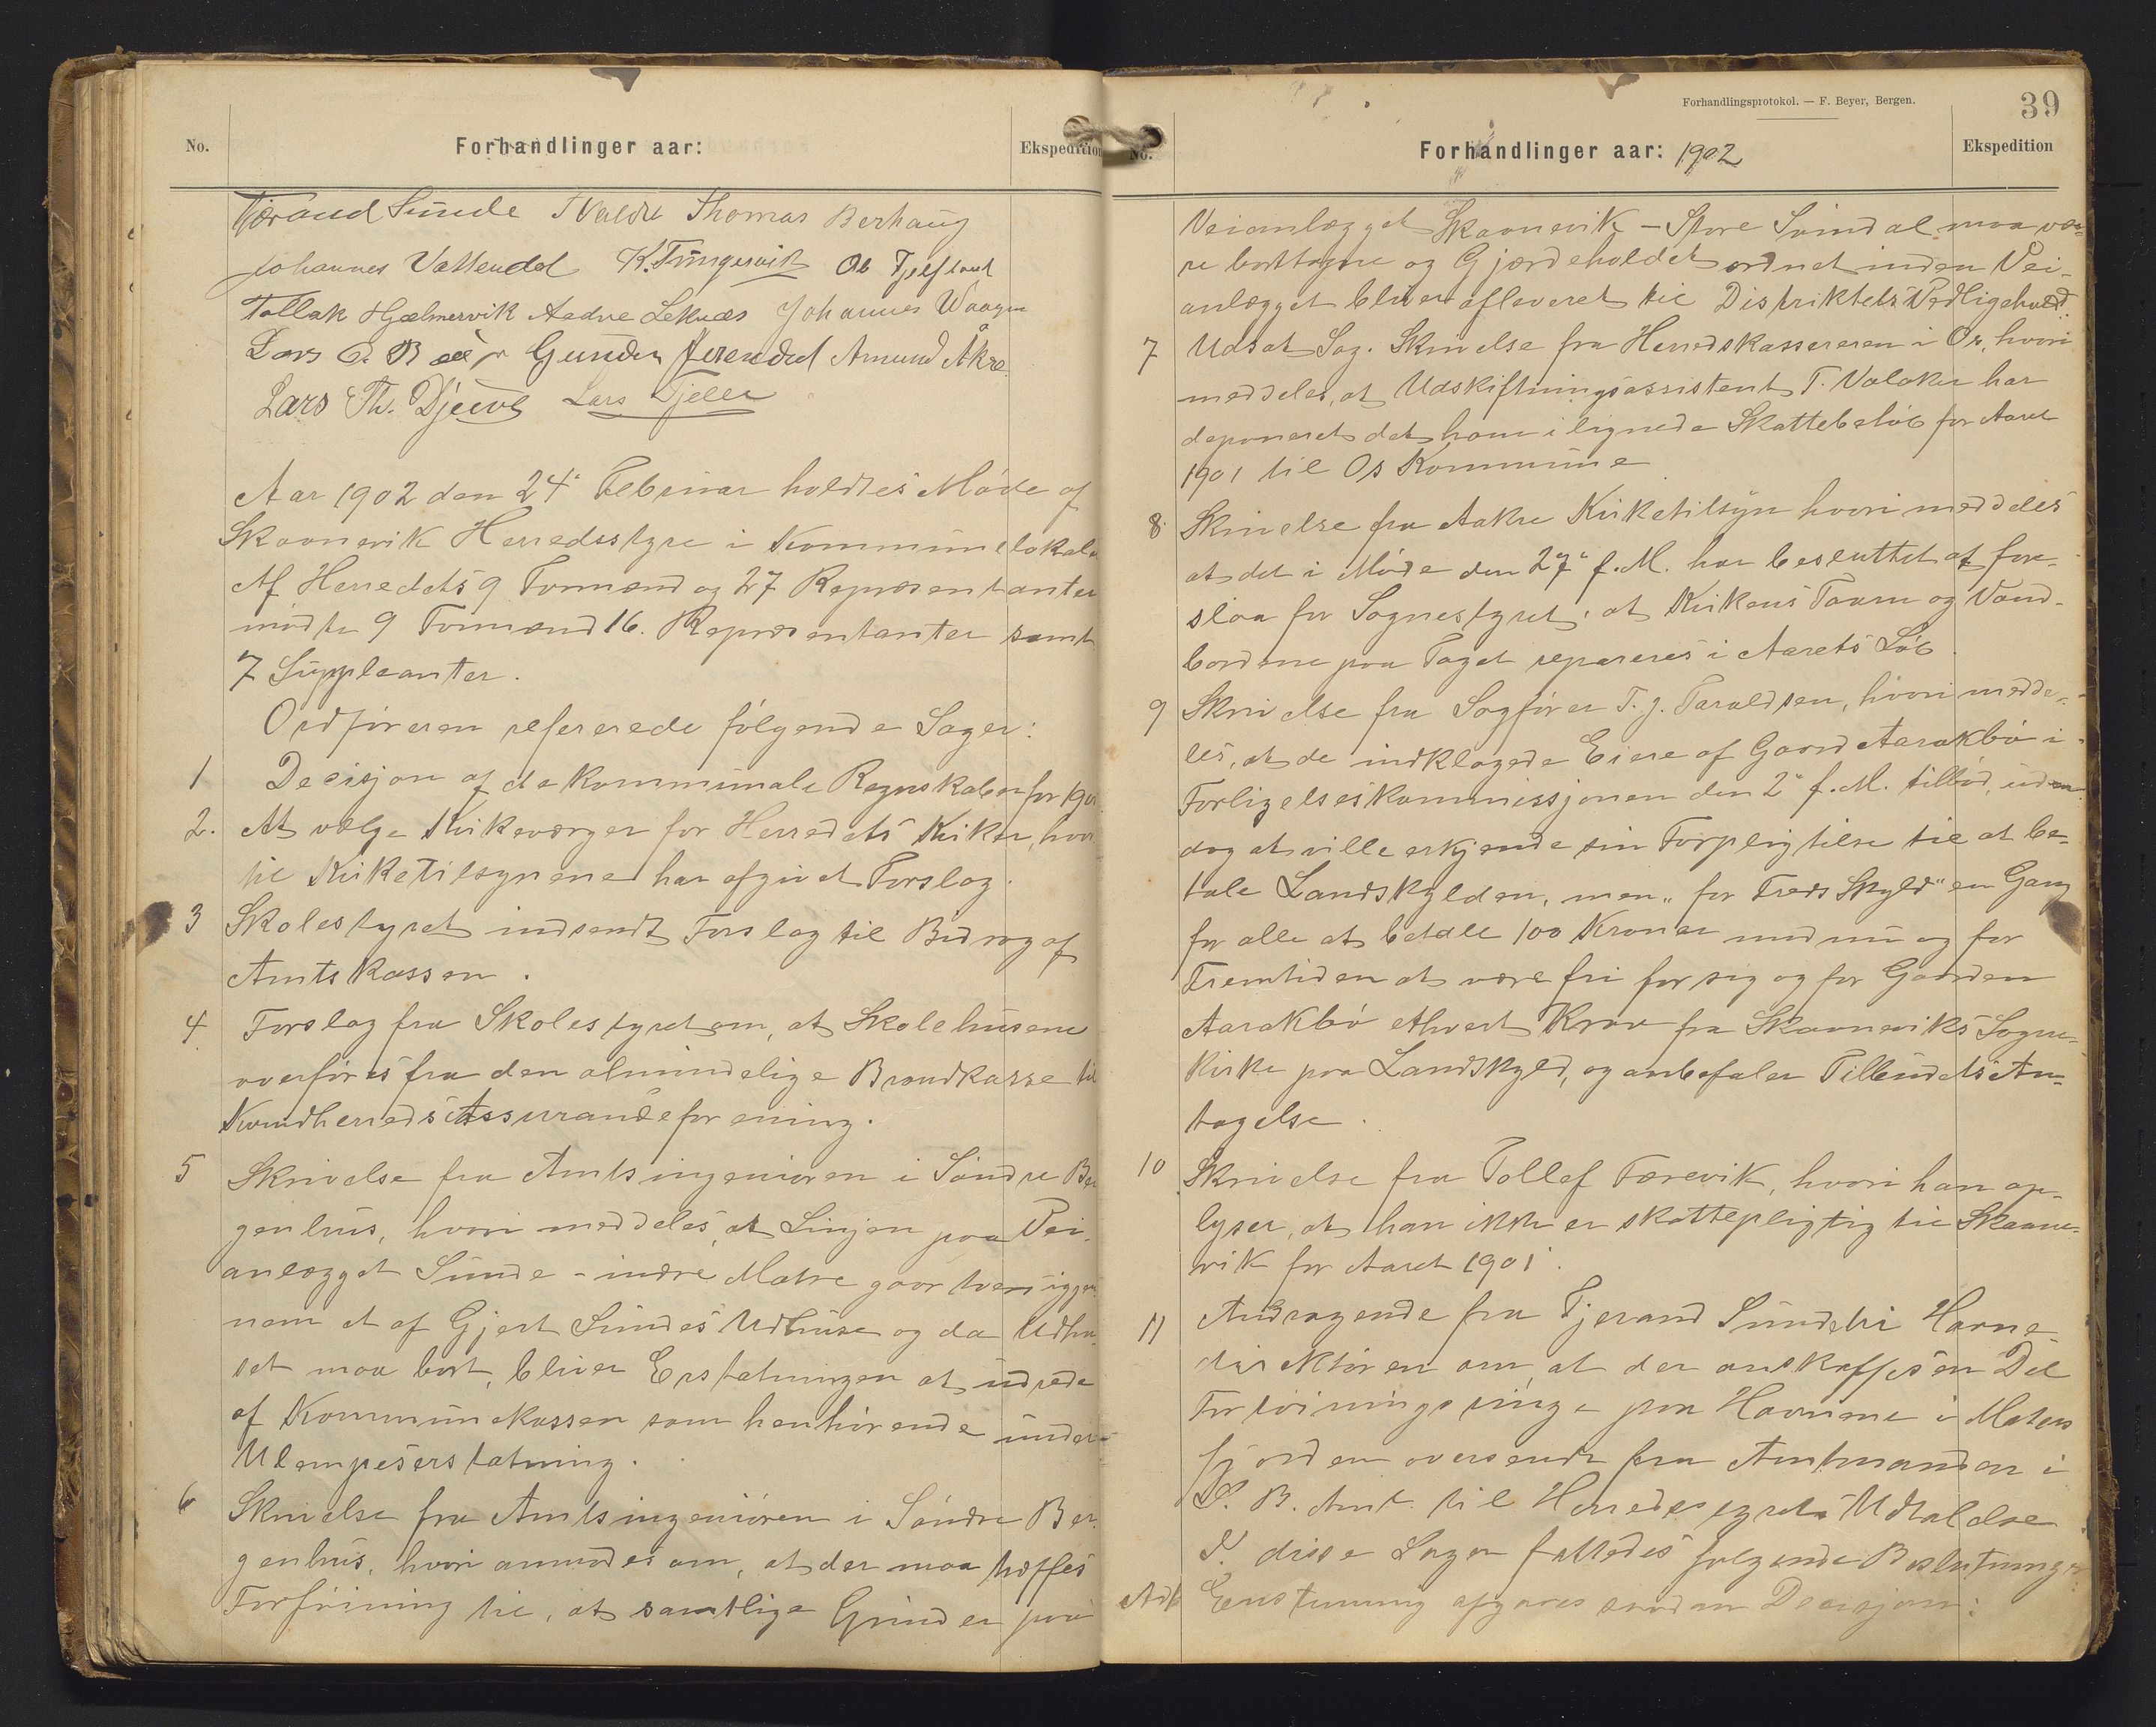 No.
Forhandlinger aar:
Ekspedition
Tjerand Sunde T Valdre Thomas Berhaug
Johannes Vattendal K. Tungesvik Ole Fjelstad
Tollak Hjelmervik Aadne Leknæs Johannes Waage
Lars O. Bær Gunder Jerendal Amund Åkre
Lars Th. Djuve Lars Tjelle
Aar 1902 den 24de Februar holdtes Møde af
Skaanevik Herredsstyre i Kommunelokalet
Af Herredets 9 Formænd og 27 Repræsentanter
mødte 9 Formænd 16. Repræsentanter samt
7 Suppleanter.
Ordføreren refererede følgende Sager:
1 Decisjon af de kommunale Regnskaber for 190
2. At vælge Kirkeværger for Herredets Kirker, hvor
til Kirketilsynene har afgivet Forslag.
3 Skolestyret indsendt Forslag til Bidrag af
Amtskassen.
4 Forslag fra Skolestyret om, at Skolehusene
overføres fra den almindelige Brandkasse til
Kvindherreds Assuranseforening.
5 Skrivelse fra Amtsingeniøren i Søndre Ber
genhus, hvori meddeles, at Linjen paa Vei-
anlægget Sunde - indre Matre gaar tvers igjen-
nem et af Gjert Sundes Udhuse og da Udhu-
set maa bort, bliver Erstatningen at udrede
af Kommunekassen som henhørende under
Ulempeserstatning.
6 Skrivelse fra Amtsingeniøren i Søndre Ber-
genhus, hvori anmodes om, at der maa træffes
Forføining til, at samtlige Grinder paa
Forhandlingsprotokol. — F. Beyer, Bergen.
39
No.
Forhandlinger aar: 1902
Ekspedition
Veianlægget Skaanevik - Store Svindal maa væ-
re borttagne og Gjærdeholdet ordnet inden Vei-
anlægget bliver afleveret til Distriktets Vedligehold.
7 Udsat Sag. Skrivelse fra Herredskassereren i Os, hvori
meddeles, at Udskiftningsassistent T. Valaker har
deponeret det ham ilignede Skattebeløb for Aaret
1901 til Os Kommune
8. Skrivelse fra Aakre Kirketilsyn hvori meddeles
at det i Møde den 27de f. M. har besluttet at fore-
slaa for Sognestyret, at Kirkens Taarn og Vand-
bordene paa Taget repareres i Aarets Løb.
9 Skrivelse fra Sagfører T. J. Taraldsen, hvori medde-
les, at de indklagede Eiere af Gaard Aarakbø i
Forligelseskommissjonen den 2de f. M. tilbød, uden
dog at ville erkjende sin Forpligtelse til at be-
tale Landskylden, men „for Freds Skyld" en Gang
for alle at betale 100 Kroner mod nu og for
Fremtiden at være fri for sig og for Gaarden
Aarakbø ethvert Krav fra Skaaneviks Sogne-
kirke paa Landskyld, og anbefaler Tilbudets An-
tagelse.
10 Skrivelse fra Tollef Færevik, hvori han op-
lyser, at han ikke er skattepligtig til Skaane-
vik for Aaret 1901.
11 Andragende fra Tjerand Sunde til Havne-
direktøren om, at der anskaffes en Del
Fortøiningsringe paa Havnene i Matre
fjorden oversendt fra Amtmanden i
S. B. Amt til Herredsstyrets Udtalelse
I disse Sager fattedes følgende Beslutninger:
Ad 1 Enstemmig afgaves saadan Decisjon: